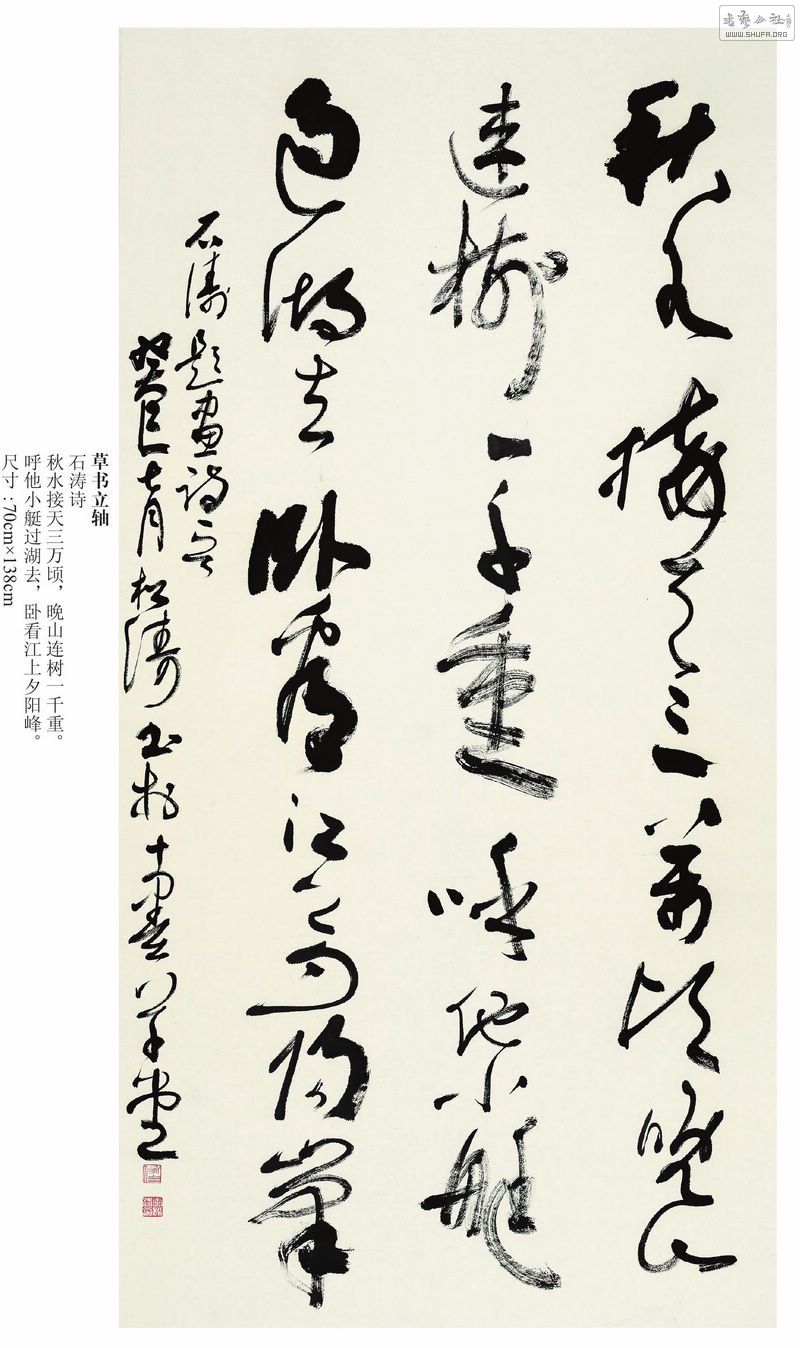 秋水接天三万顷晚山
连树一千重呼他小艇
过湖去卧看江上夕阳峰
石涛题画诗句
癸巳七月松涛书于
草书立轴
石涛诗
秋水接天三万顷，晚山连树一千重。
呼他小艇过湖去，卧看江上夕阳峰。
尺寸：70cm×138cm
书艺公社
WWW.SHUFA.ORG